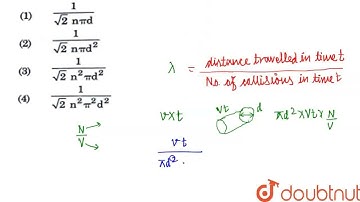 (1) 1 / √2 nπd
(2) 1 / √2 nπd²
(3) 1 / √2 n²π²d²
(4) 1 / √2 n²π²d²
λ = distance travelled in time t / No. of collisions in time t
v×t
vt d
πd² × vt × N/V
N/V
vt / πd² .
doubtnut